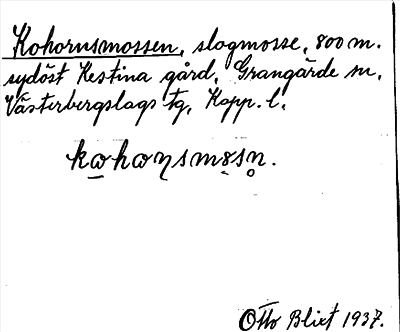 Kohornsmossen, slogmosse, 800 m.
sydöst Kestina gård, Grangärde sn,
Västerbergslags tg, Kopp. l.
kohoṇsmɷsn̥.
Otto Blixt 1937.